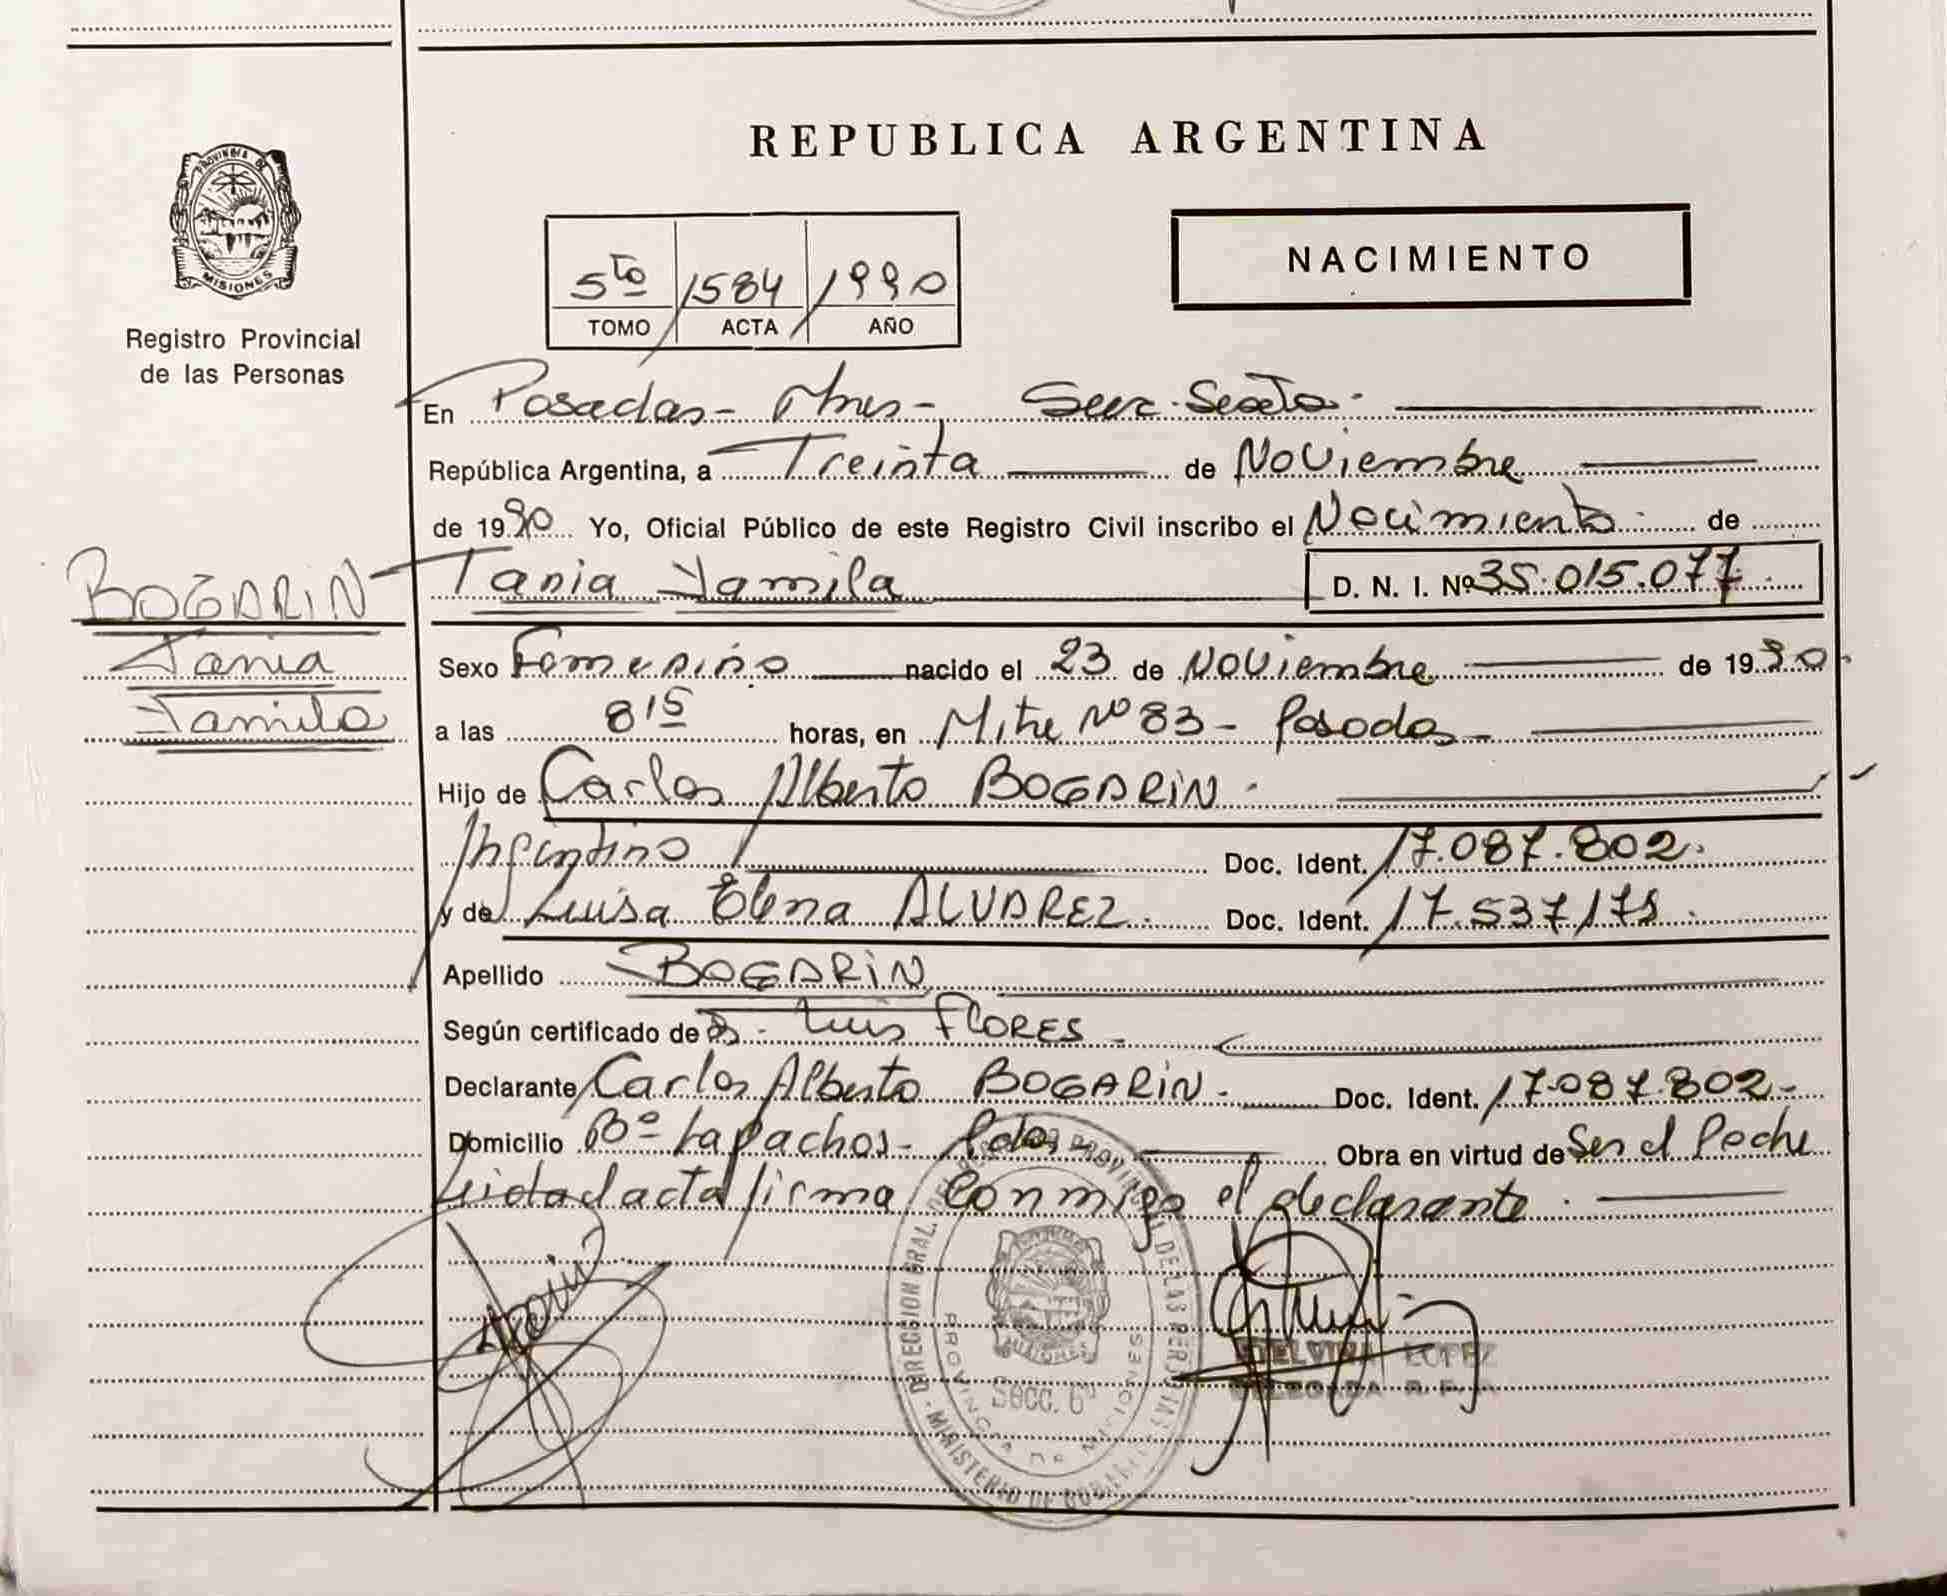 REPUBLICA ARGENTINA
PROVINCIA DE
MISIONES
Registro Provincial
de las Personas
NACIMIENTO
5to 1584 1990
TOMO ACTA AÑO
En Posadas - Mnes - Secc. Sexta.
República Argentina, a Treinta de Noviembre
de 1990 Yo, Oficial Público de este Registro Civil inscribo el Nacimiento de
BOGARIN
Tania
Yamila
Tania Yamila D. N. I. Nº 35.015.077
Sexo Femenino nacido el 23 de Noviembre de 1990
a las 815 horas, en Mitre Nº 83 - Posadas
Hijo de Carlos Alberto BOGARIN
Argentino Doc. Ident. 17.087.802
y de Luisa Elena ALVAREZ Doc. Ident.
Apellido BOGARIN
Según certificado de Luis FLORES
Declarante Carlos Alberto BOGARIN Doc. Ident. 17.087.802
Domicilio Bº Lapachos - Pdas Obra en virtud de Ser el Padre
Leida el acta firma Conmigo el declarante
DIRECCION GRAL. DEL REGISTRO PROVINCIAL DE LAS PERSONAS
MINISTERIO DE GOBIERNO
PROVINCIA DE MISIONES
MISIONES
Secc. 6ª
ETELVINA LOPEZ
DELEGADA R. P.